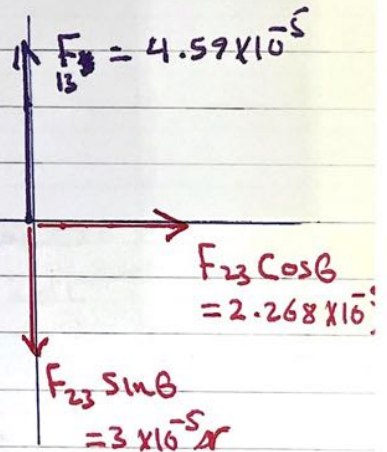 F₁₃ = 4.59×10⁻⁵
F₂₃ Cosθ
= 2.268×10⁻
F₂₃ Sinθ
= 3×10⁻⁵ N